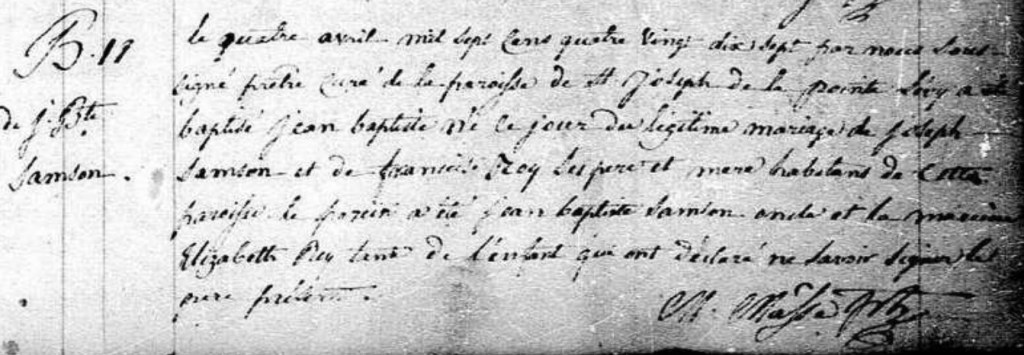 B. 11
de J. Bte
Samson.
le quatre avril mil sept Cens quatre Vingt dix sept par nous sous-
signé prêtre Curé de la paroisse de St Joseph de la pointe Lévy a été
baptisé Jean baptiste né ce jour du légitime mariage de Joseph
Samson et de françoise Roy ses pere et mere habitans de Cette
paroisse le parein a été Jean baptiste Samson oncle et la mareine
Elizabeth Roy tante de l'enfant qui ont déclaré ne savoir signer le
pere présent.
M. Masse Ptr